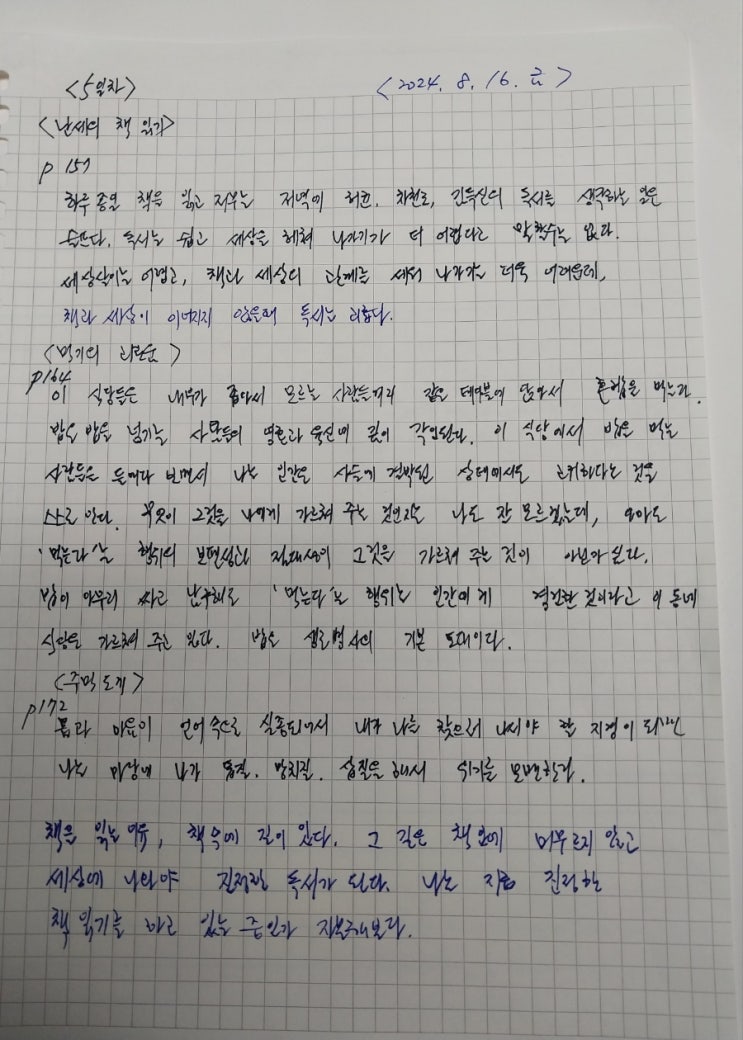 <5일차> <2024. 8. 16. 금>
<난세의 책 읽기>
p 157
하루 종일 책을 읽고 저무는 저녁에 허균, 차천로, 김득신의 독서를 생각하는 일은
슬프다. 독서는 쉽고 세상을 헤쳐 나가기가 더 어렵다고 말할수는 없다.
세상살이는 어렵고, 책과 세상의 관계를 세워 나가기는 더욱 어려운데,
책과 세상이 이어지지 않을때 독서는 괴롭다.
<먹기의 괴로움>
p164
이 식당들은 내부가 좁아서 모르는 사람들끼리 같은 테이블에 앉아서 혼밥을 먹는다.
밥은 밥을 넘기는 사람들의 영혼과 육신에 깊이 각인된다. 이 식당에서 밥을 먹는
사람들을 들여다 보면서 나는 인간은 사슬에 결박된 상태에서도 고귀하다는 것을
스스로 안다. 무엇이 그것을 나에게 가르쳐 주는 것인지는 나도 잘 모르겠는데, 아마도
'먹는다'는 행위의 보편성과 절대성이 그것을 가르쳐 주는 것이 아닌가 싶다.
밥이 아무리 싸고 남루해도 '먹는다'는 행위는 인간에게 경건한 것이라고 이 동네
식당은 가르쳐 주고 있다. 밥은 생로병사의 기본 토대이다.
<주먹도끼>
p172
몸과 마음이 언어 속으로 실종되어서 내가 나를 찾으러 나서야 할 지경이 되면
나는 마당에 나가 톱질, 망치질, 삽질을 해서 위기를 모면한다.
책을 읽는 이유, 책 속에 길이 있다. 그 길은 책 안에 머무르지 않고
세상에 나와야 진정한 독서가 된다. 나는 지금 진정한
책 읽기를 하고 있는 중인가 자문해보다.